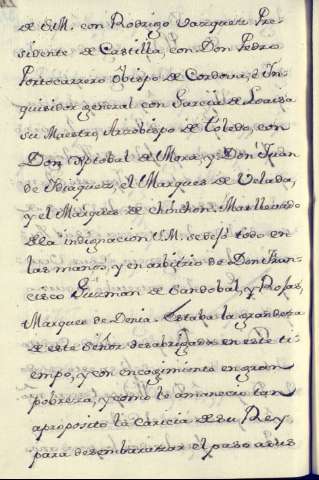 de S.M. con Rodrigo Vazquez Pre-
sidente de Castilla, con Don Pedro
Portocarrero Obispo de Cordova, è In-
quisidor general con Garcia de Loaisa
su Maestro, Arzobispo de Toledo, con
Don Xptobal de Mora, y Don Juan
de Idiaquez, el Marques de Velada,
y el Marques de Chinchon. Mas llevado
de la indignacion V.M. se dejó todo en
las manos, y en arbitrio de Don Fran-
cisco Guzman de Sandobal, y Rojas,
Marques de Denia. Estaba la grandeza
de este Señor desabrigada en este ti-
empo, y con encogimiento en gran
pobreza, y como le amanecio tan
aproposito la caricia de su Rey
para desembarazar el paso a sus